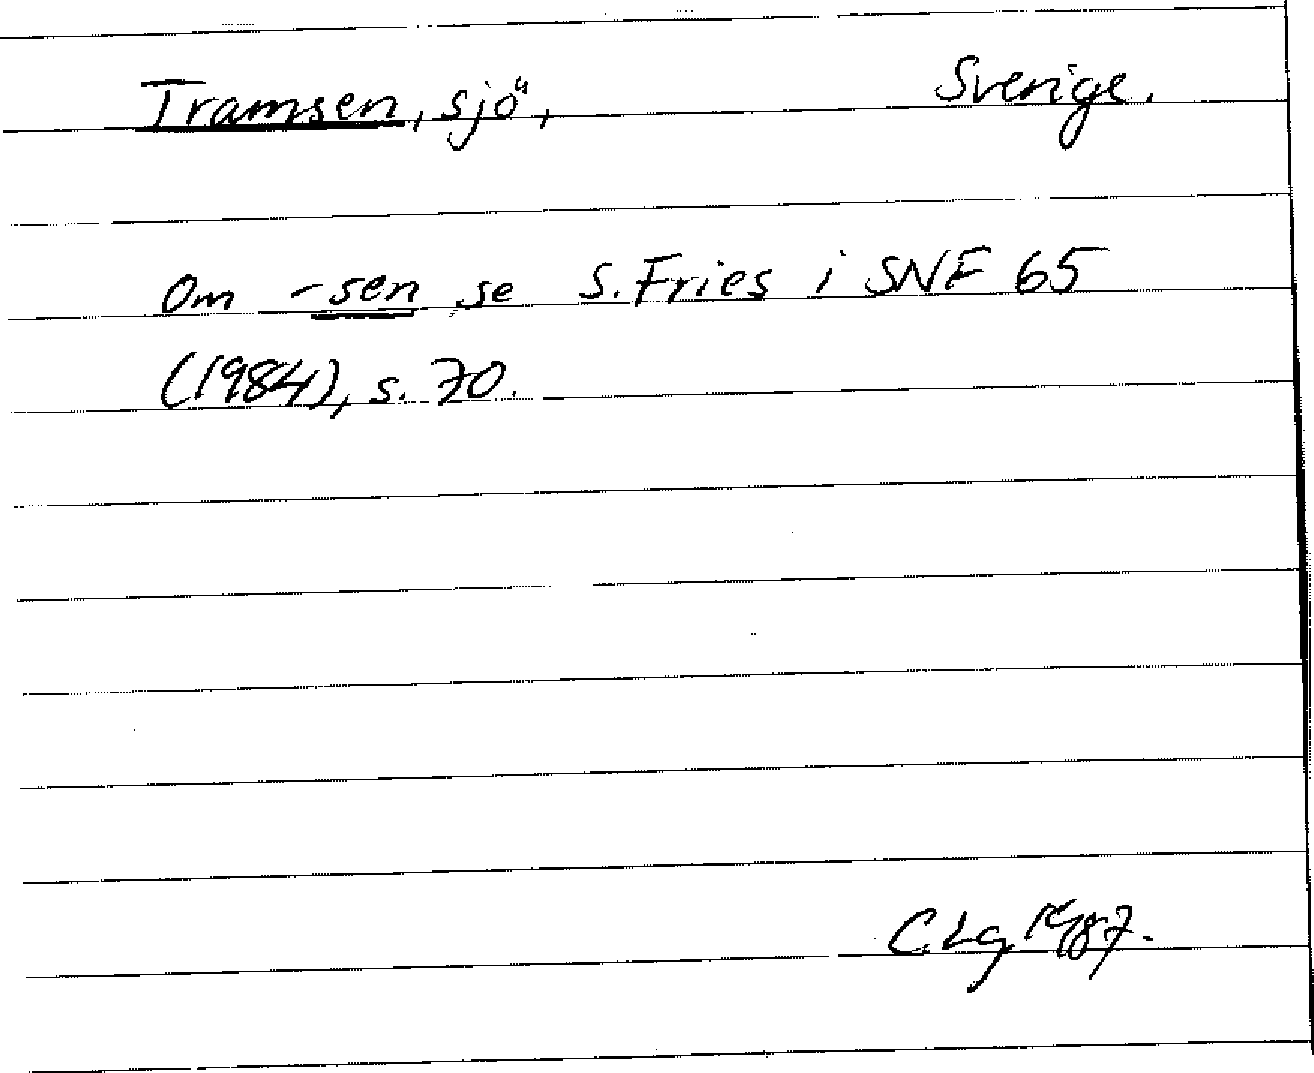 Tramsen, sjö, Sverige.
Om -sen se S. Fries i SNF 65
(1984), s. 70.
CLg 1987.